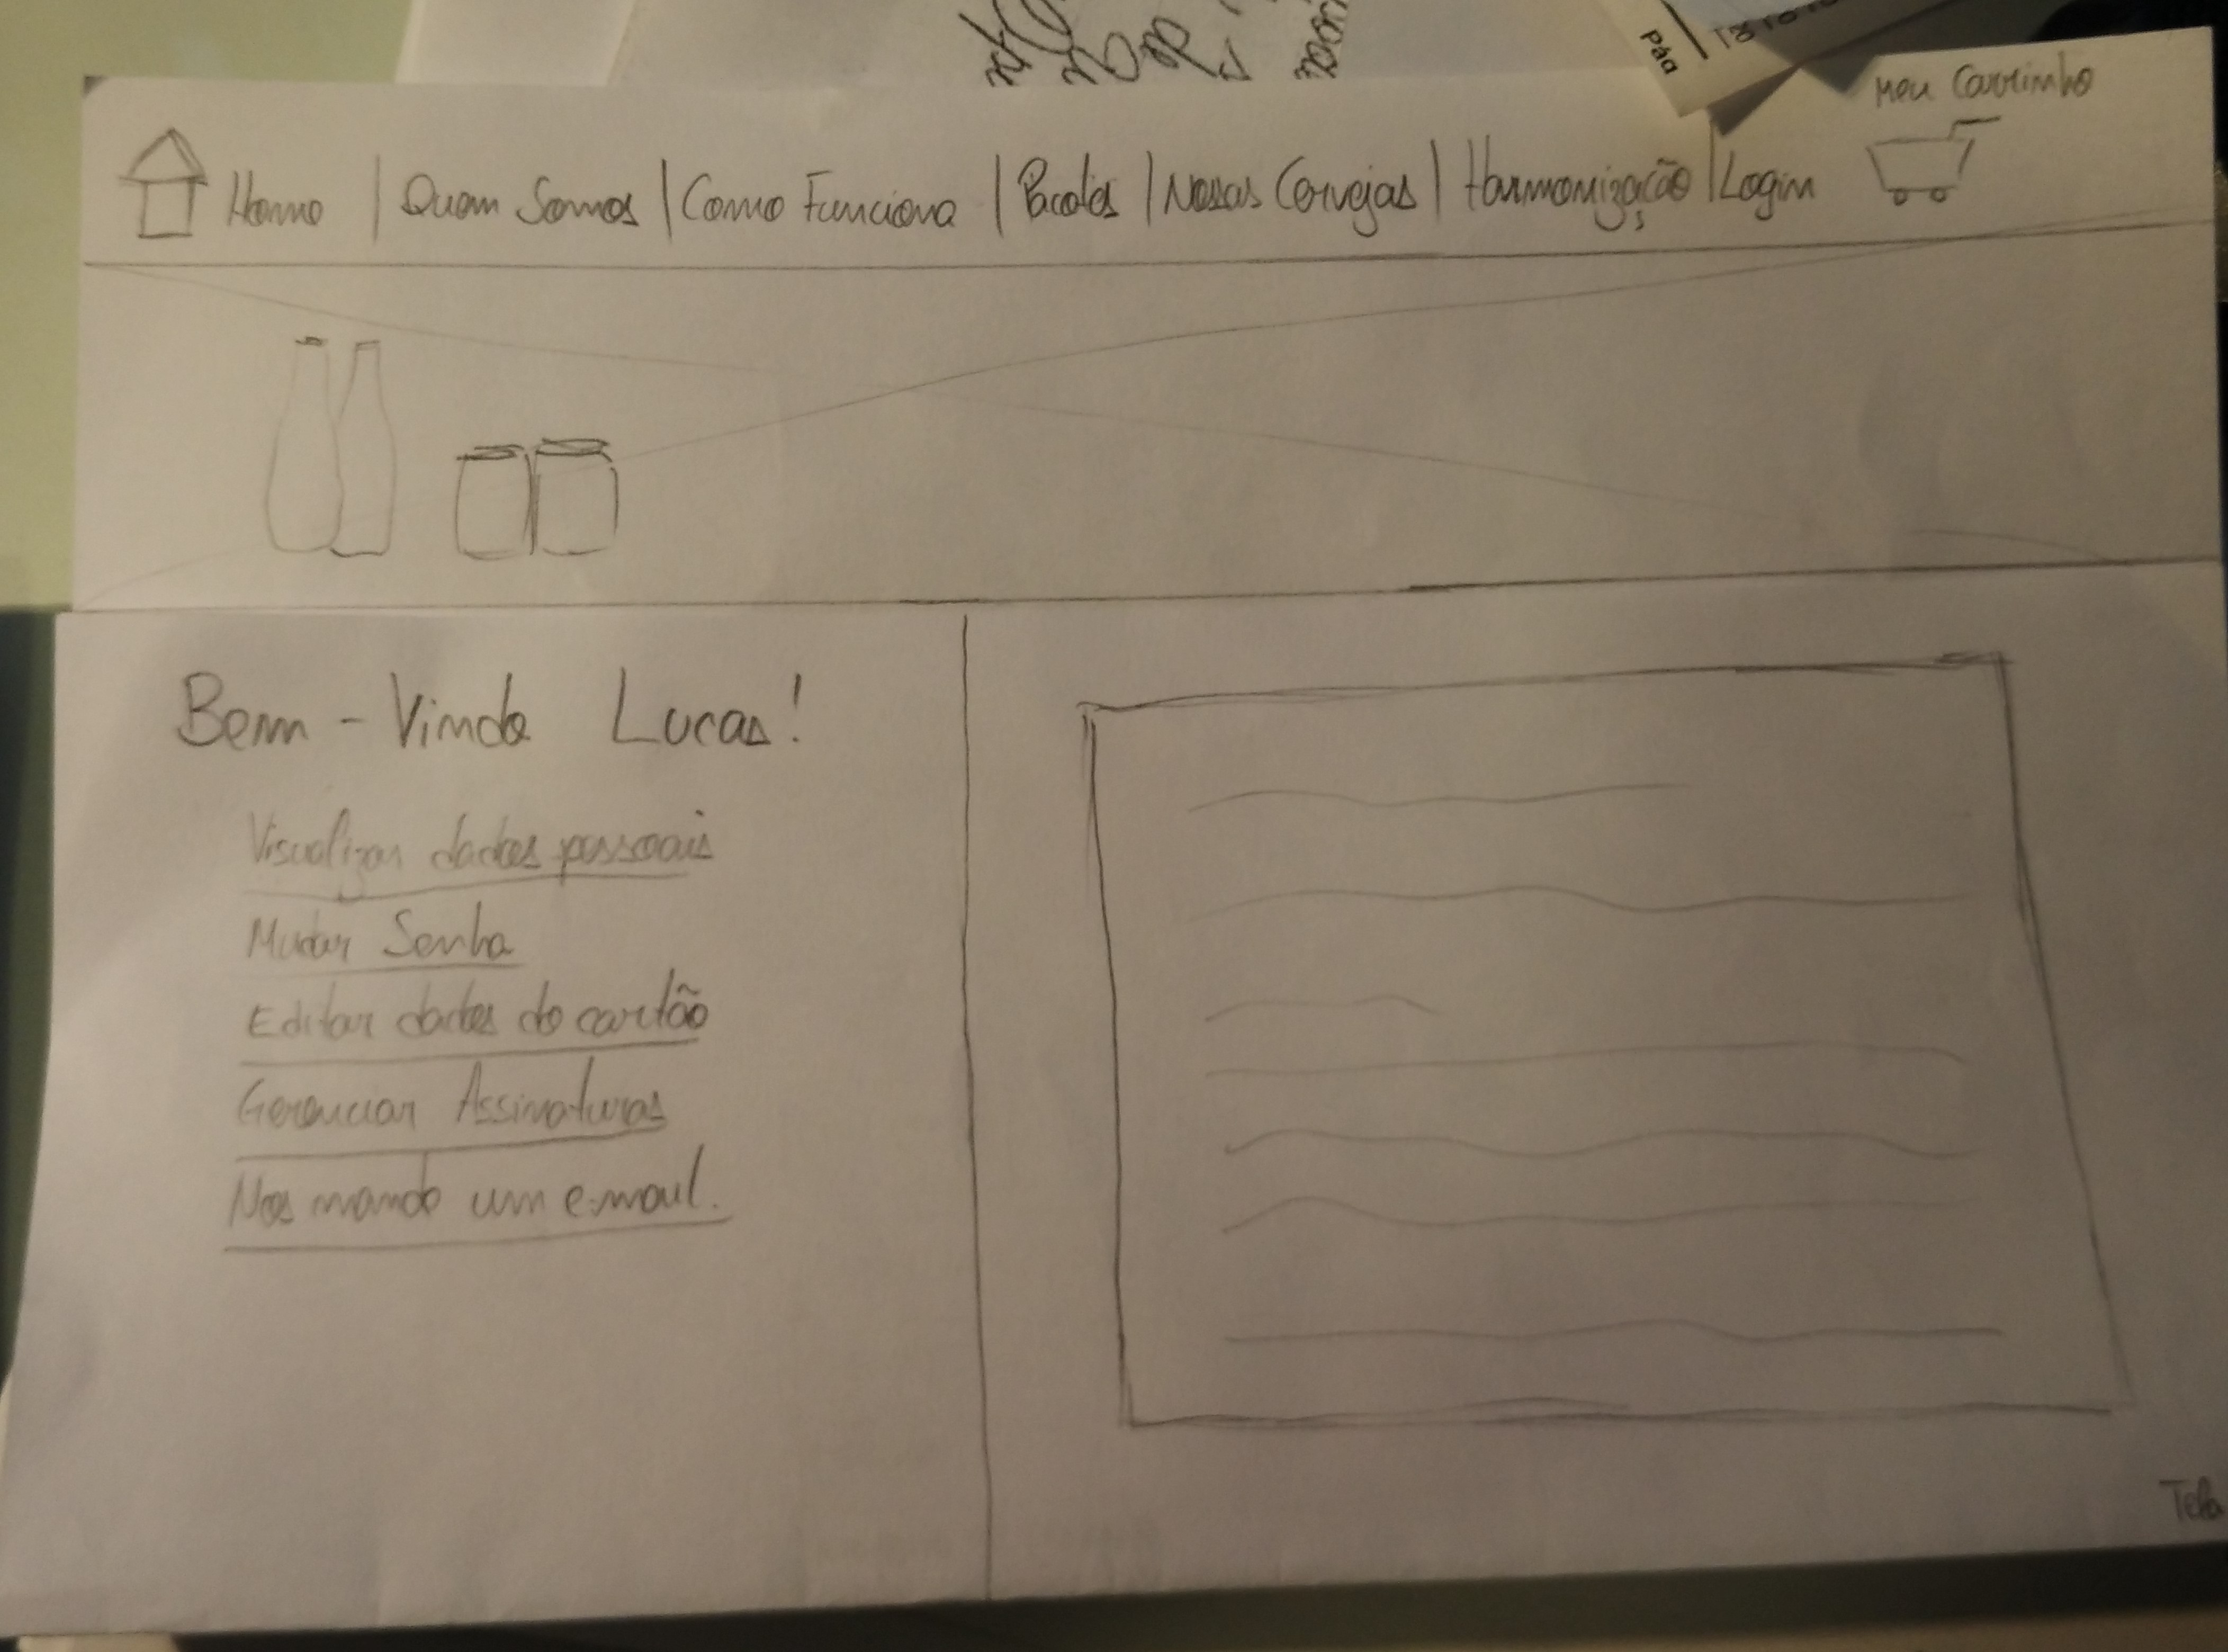 Meu Carrinho
Home | Quem Somos | Como Funciona | Pacotes | Nossas Cervejas | Harmonização | Login
Bem-Vindo Lucas!
Visualizar dados pessoais
Mudar Senha
Editar dados do cartão
Gerenciar Assinaturas
Nos mande um e-mail.
Tela